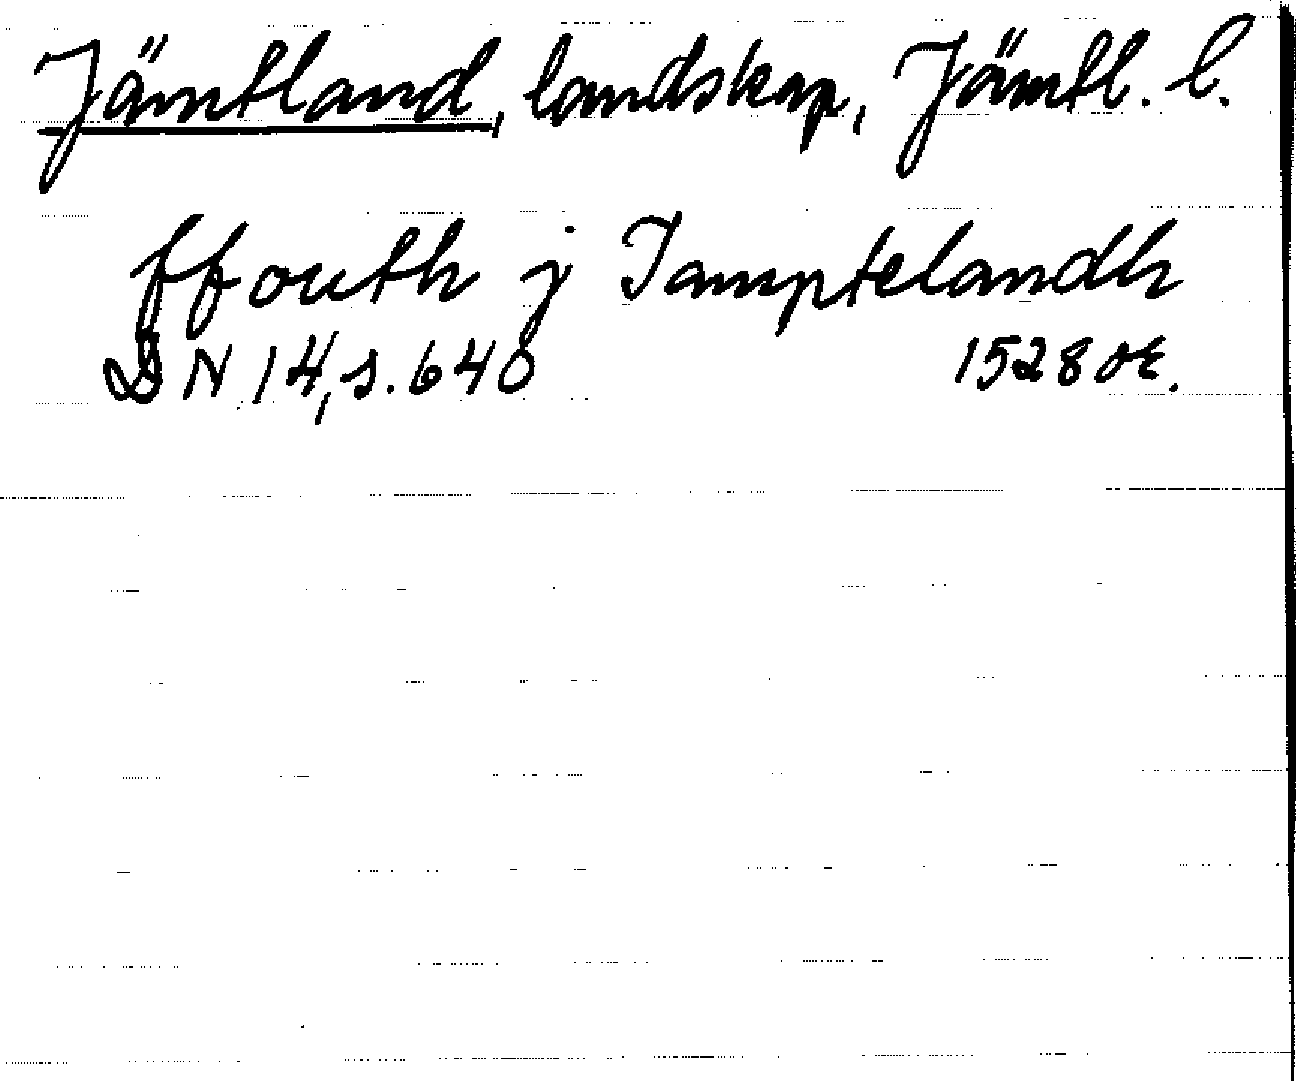 Jämtland, landskap, Jämtl. l.
ffouth j Jamptelandh
DN 14, s. 640 1528 or.